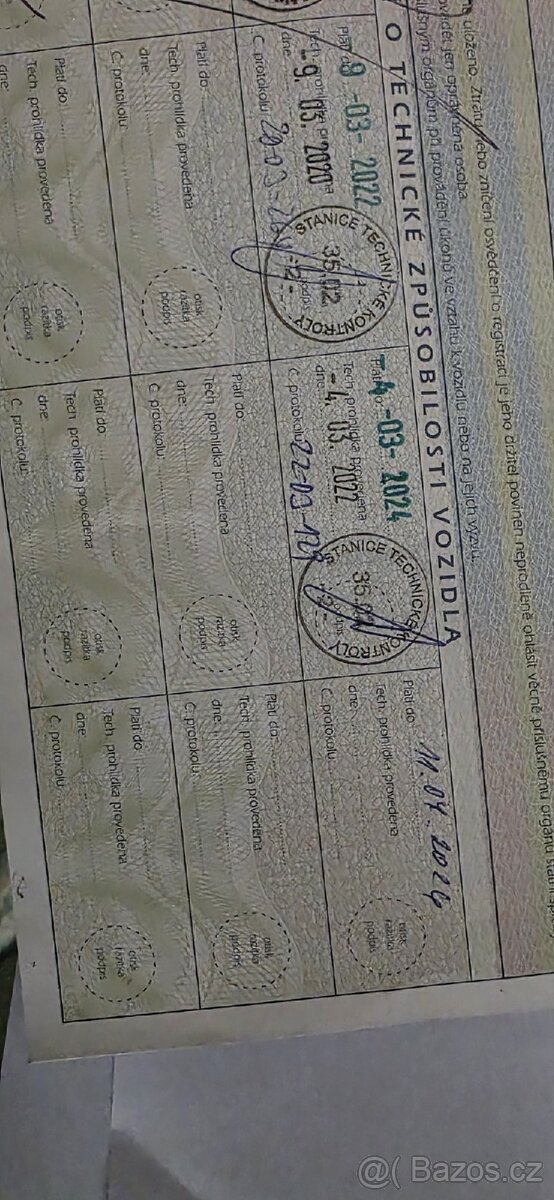 uloženo. Ztrátu nebo zničení osvědčení o registraci je jeho držitel povinen neprodleně ohlásit věcně příslušnému orgánu
jen oprávněná osoba.
orgánům při provádění úkonů ve vztahu k vozidlu nebo na jejich výzvu.
O TECHNICKÉ ZPŮSOBILOSTI VOZIDLA
Platí do
-9 -03- 2022
Tech. prohlídka provedena
dne:
-9. 03. 2020
Č. protokolu:
STANICE TECHNICKÉ KONTROLY
35.02
Platí do:
-4 -03- 2024
Tech. prohlídka provedena
dne:
-4. 03. 2022
Č. protokolu:
22-03-128
STANICE TECHNICKÉ KONTROLY
35.02
Platí do:
Tech. prohlídka provedena
dne:
Č. protokolu:
otisk
razítka
podpis
Platí do:
Tech. prohlídka provedena
dne:
Č. protokolu:
otisk
razítka
podpis
Platí do:
Tech. prohlídka provedena
dne:
Č. protokolu:
otisk
razítka
podpis
Platí do:
Tech. prohlídka provedena
dne:
Č. protokolu:
otisk
razítka
podpis
Platí do:
Tech. prohlídka provedena
dne:
otisk
razítka
podpis
Platí do:
Tech. prohlídka provedena
dne:
Č. protokolu:
otisk
razítka
podpis
Platí do:
Tech. prohlídka provedena
dne:
Č. protokolu:
otisk
razítka
podpis
@( Bazos.cz